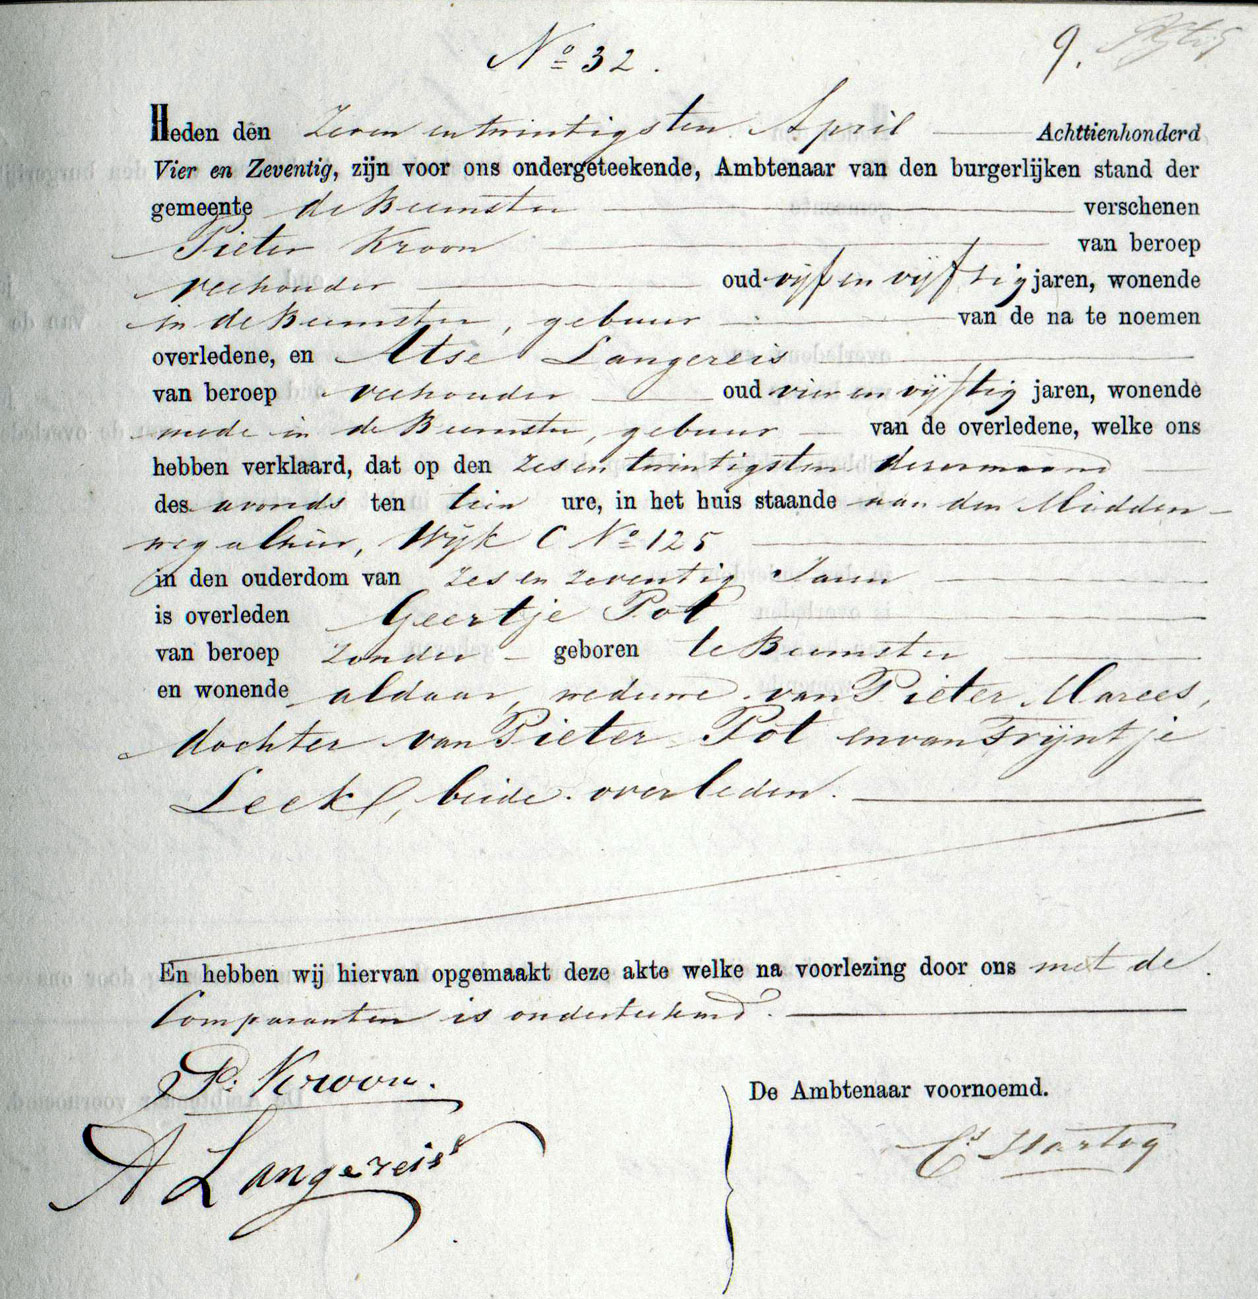 No 32.
9.
Heden den Zeven en twintigsten April Achttienhonderd
Vier en Zeventig, zijn voor ons ondergeteekende, Ambtenaar van den burgerlijken stand der
gemeente de Beemster verschenen
Pieter Kroon van beroep
veehouder oud vijf en vijftig jaren, wonende
in de Beemster, gebuur van de na te noemen
overledene, en Atse Langereis
van beroep veehouder oud vier en vijftig jaren, wonende
mede in de Beemster, gebuur van de overledene, welke ons
hebben verklaard, dat op den zes en twintigsten dezer maand
des avonds ten tien ure, in het huis staande aan den Midden-
weg alhier, Wijk C No 125
in den ouderdom van zes en zeventig Jaren
is overleden Geertje Pot
van beroep zonder geboren te Beemster
en wonende aldaar, weduwe van Pieter Marees,
dochter van Pieter Pot en van Trijntje
Leek, beide overleden.
En hebben wij hiervan opgemaakt deze akte welke na voorlezing door ons met de
Comparanten is onderteekend.
P. Kroon.
De Ambtenaar voornoemd.
A Langereis
Cs Hartog